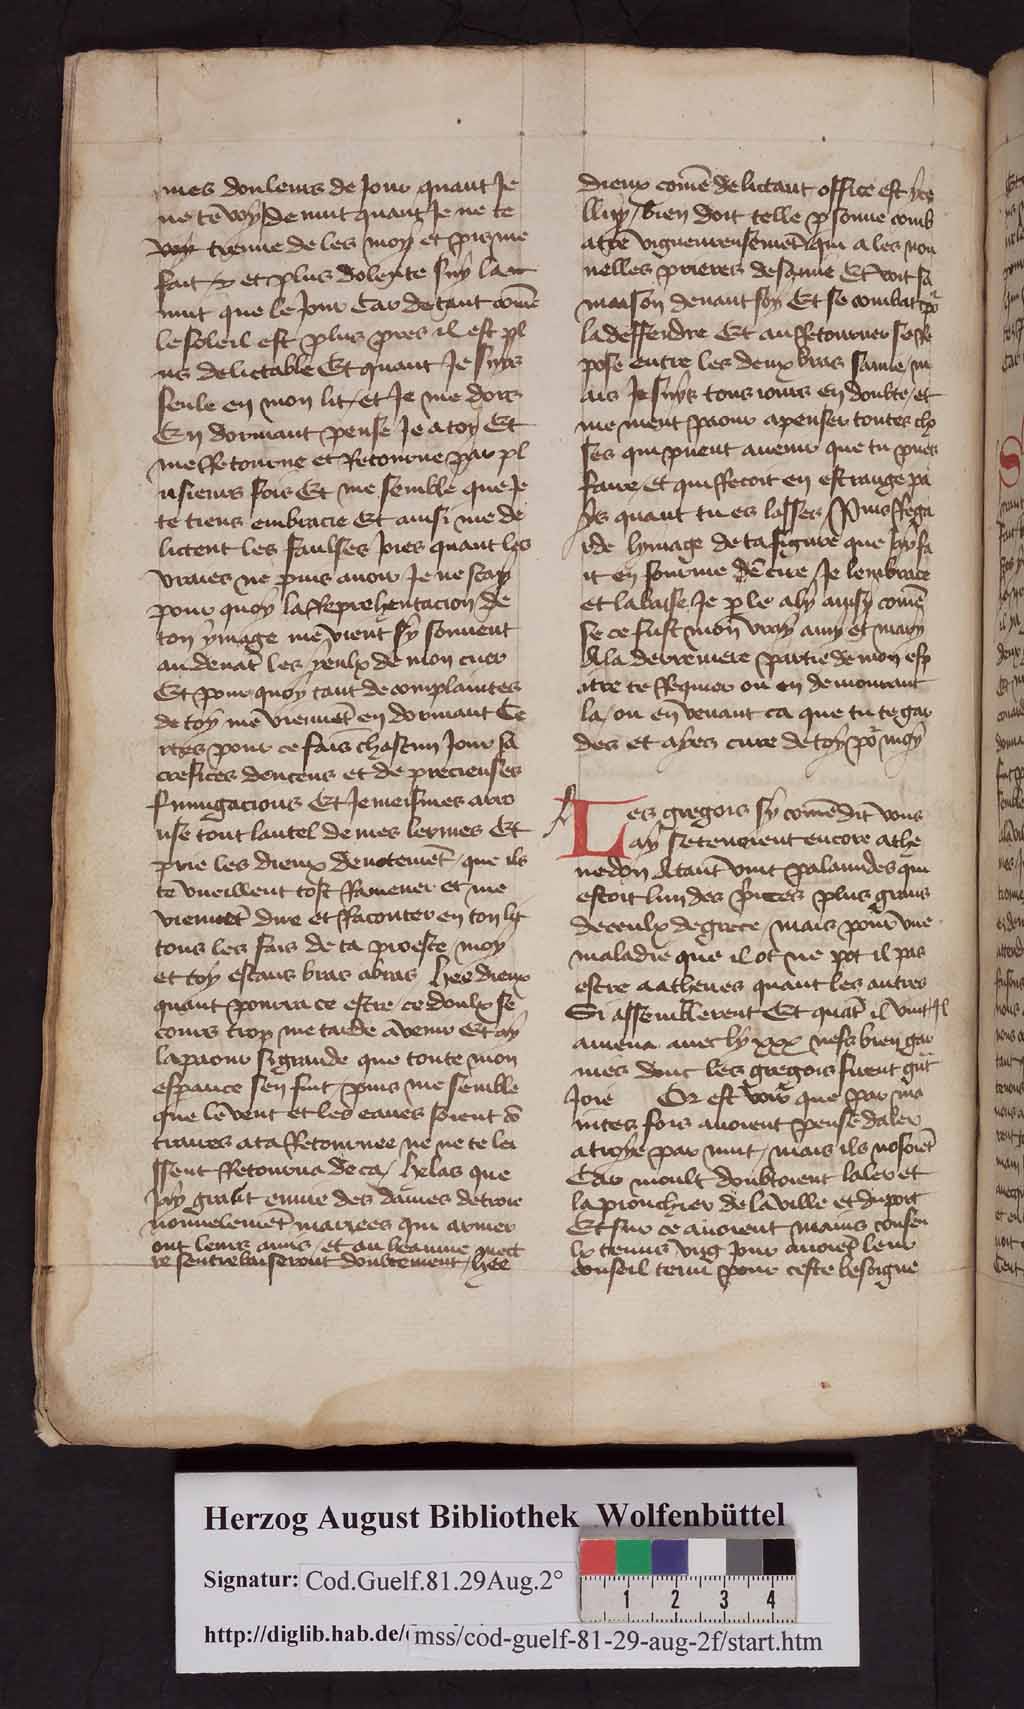 mes douleurs de Jour quant Je
ne te voy De nuit quant Je ne te
voy tienne de les moy et puis me
fait et plus dolente suy la
nuit que le Jour Car de tant cōme
le soleil est plus pres il est pl
us delictable Et quant Je suys
seule en mon lit et Je me dors
En dormant pense Je a toy Et
me Retourne et Retourne par pl
usieurs fois Et me semble que Je
te tiens embracie Et ainsi me de
lictent les faulses Joies quant les
vraies ne puis auoir Je ne scay
pour quoy la Reprehentacion de
ton ymage me vient sy souuent
au deuāt les yeulx de mon cuer
Et pour quoy tant de complaintes
de toy me viennēt en dormant Ce
rtes pour ce fais chascun Jour sa
crefices dencens et de precieuses
fumigacions Et Je meismes arro
use tout lautel de mes lermes Et
prie les dieux deuotemēt que ils
te vueillent tost Ramener et me
viennēt dire et Raconter en ton lit
tous les fais de ta proeste moy
et toy estans bras a bras hee dieux
quant pourra ce estre ce doulx se
cours trop me tarde a venir Et ay
la paour si grande que toute mon
esperance sen fuit puis me semble
que le vent et les eaues soient cō
traires a ta Retournee ne ne te lei
ssent Retourna de ca helas que
Jay grant enuie des dames de troie
nouuelemēt mariees qui armer
ont leurs amis et au heaume mect
re sentrebaiseront doulcement hee
dieux comē delictant office est
bien doit telle psonne comb
atre vigueureusemēt qui a les nou
uelles prieres de samie Et voit sa
maison deuant soy Et se combat po
la deffendre Et au Retourner se Re
pose entre les deux bras samie m
ais Je suys tous iours en doubte et
me vient paour a penser toutes cho
ses qui puent auenir que tu pues
faire et qui Recoit en estrange pa
ys quant tu es lasses Puis Rega
rde lymage de ta figure que Jay fa
it en fourme de cire Je lembrace
et la baise Je p le a ly ainsy comē
se ce fust mon vray amy et mary
A la derreniere partie de mon esp
itre te Requier ou en demourant
la ou en venant ca que tu te gar
des et ayes cure de toy po moy
Les gregois sy comē dit vous
ay se tenoient encore a the
nedon Atant vint palamides qui
estoit lun des princes plus grans
de ceulx de grece mais pour vne
maladie que il ot ne pot il pas
estre a athenes quant les autres
Si assemblerent Et quāt il vint Il
amena auec ly xxx nefs bien gar
nies dont les gregois furent grāt
Joie Or est voir que par ma
intes fois auoient pense daler
a troye par nuit mais ils nosoiēt
Car moult doubtoient laler et
la prouchier de la ville et du port
Et sur ce auoient mains consei
lx tenus vng Jour auoiēt leur
conseil tenu pour ceste besoigne
Herzog August Bibliothek Wolfenbüttel
Signatur: Cod.Guelf.81.29Aug.2°
1 2 3 4
http://diglib.hab.de/ mss/cod-guelf-81-29-aug-2f/start.htm